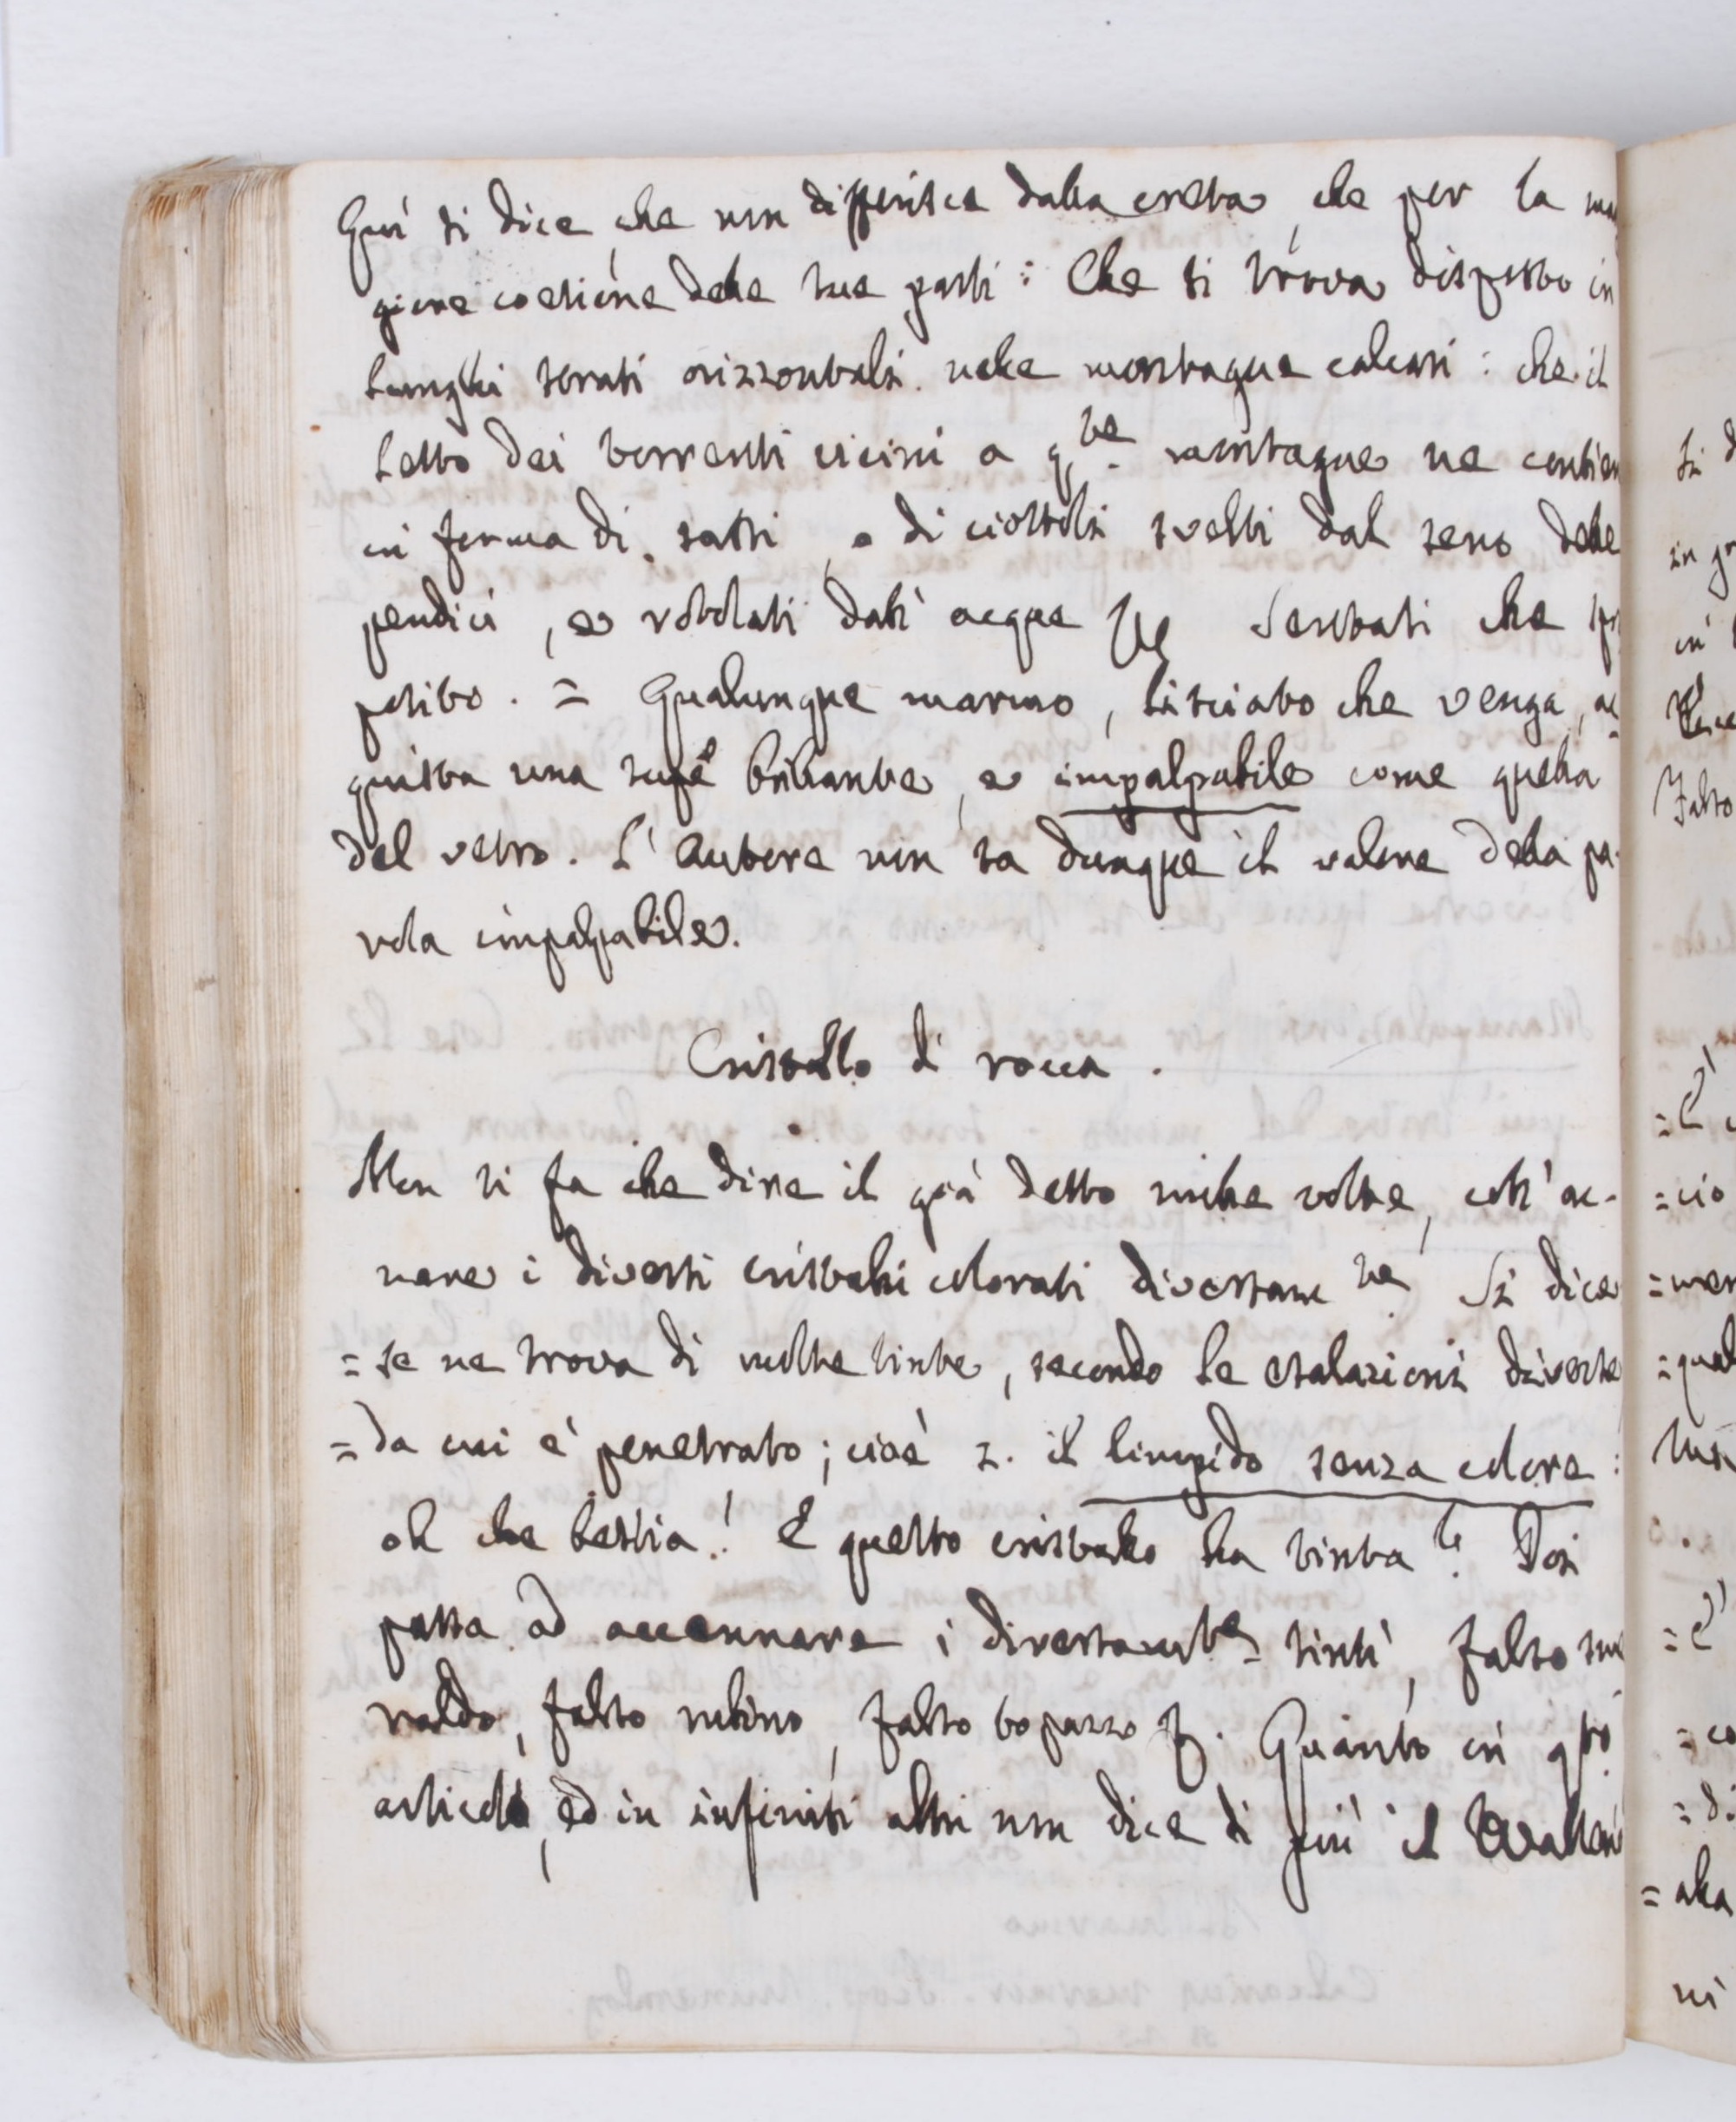 Qui si dice, che non differisce dalla creta, che per la mag
giore coesione delle sue parti: Che si trova disposto in
lunghi strati orizzontali nelle montagne calcari: che il
letto dei torrenti vicini a q.te montagne ne contien
in forma di sassi, o di ciottoli svelti dal seno delle
pendici, e rotolati dall'acque Sentati che
posito. = Qualunque marmo, lisciato che venga, ac
quista una supé brillante, e impalpabile come quella
del vetro. L'Autore non sa dunque il valore della pa-
rola impalpabile.
Cristallo di rocca.
Non si fa che dire il già detto mille volte, coll'ac-
nare i diversi cristalli colorati diversam.te Si dice
= se ne trova di molte tinte, secondo le esalazioni diverse
= da cui è penetrato; cioè 1. il limpido senza colore:
oh che bestia! E questo cristallo ha tinta? Poi
passa ad accennare i diversam.te tinti, falso sme
raldo, falso rubino, falso topazzo &. Quanto in q.to
articolo, ed in infiniti altri non dice di più il Walleri
si d
in gr
in
Falso
= È
= cio
= mer
= qual
= È
= co
= di
= alla
ni